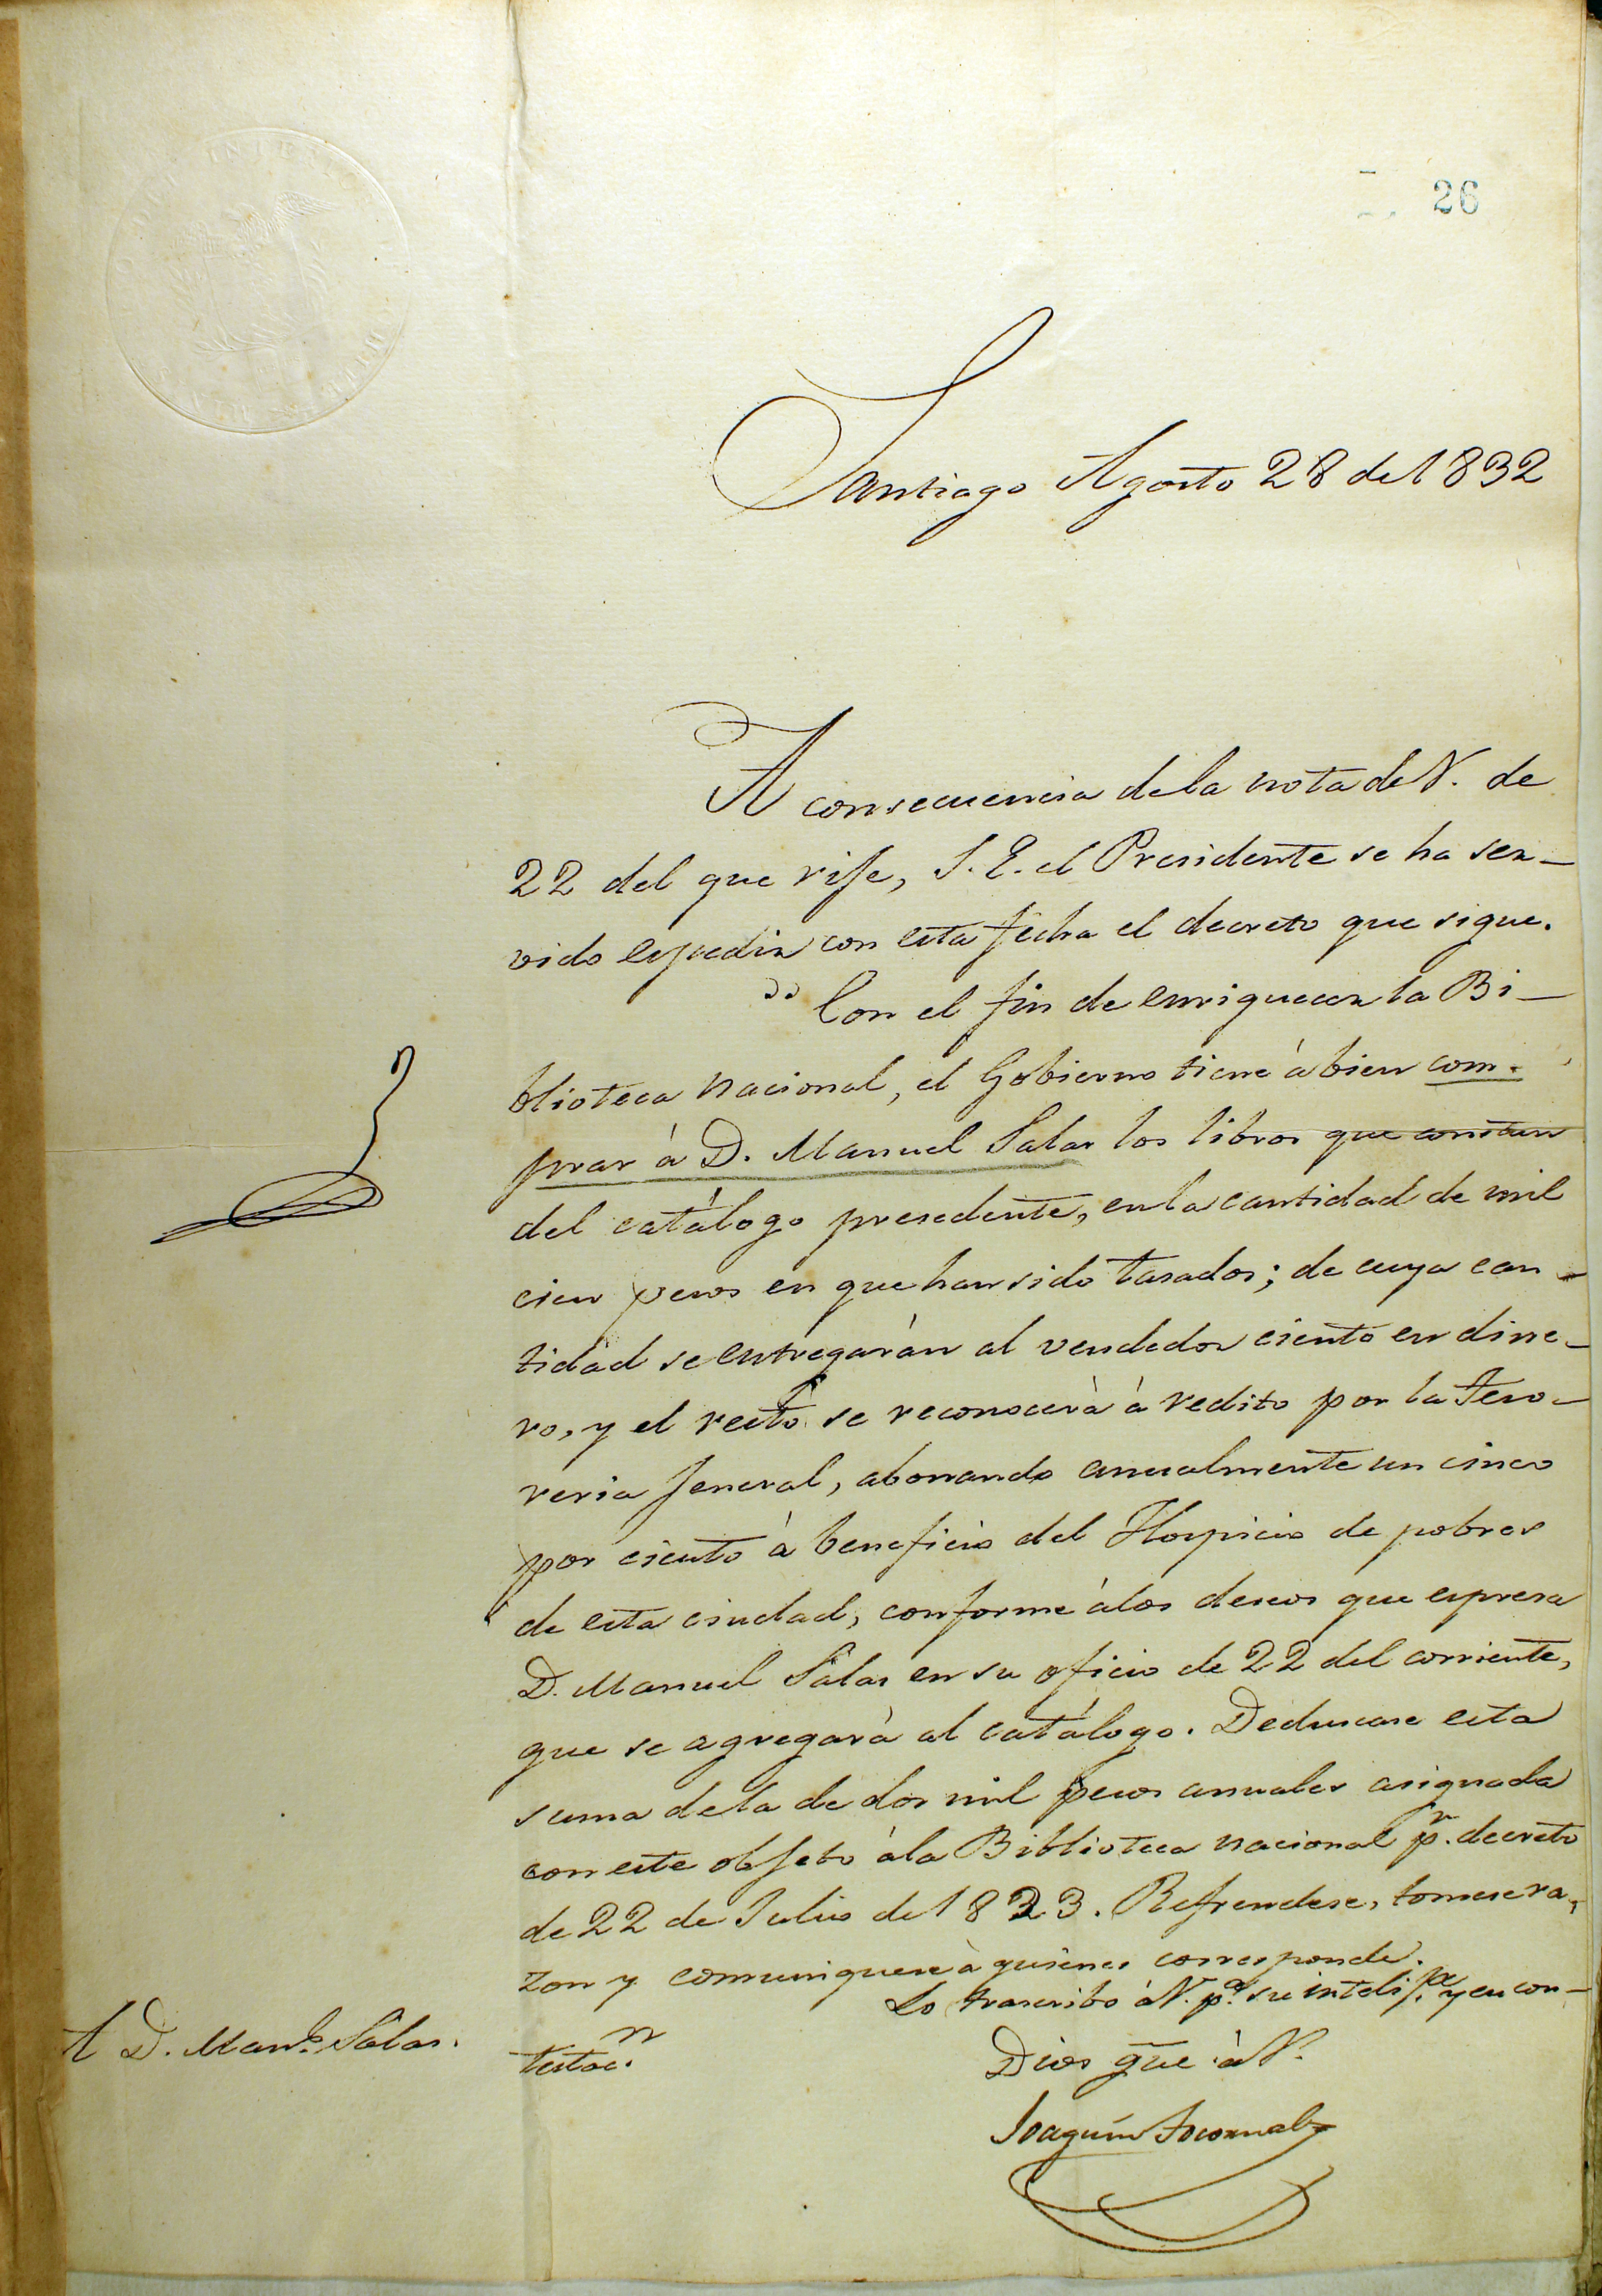 26
Santiago Agosto 28 de 1832
A consecuencia de la nota de V. de
22 del que rije, S. E. el Presidente se ha ser-
vido espedir con esta fecha el decreto que sigue.
"Con el fin de enriquecer la Bi-
blioteca nacional, el Gobierno tiene à bien com-
prar à D. Manuel Salas los libros que constan
del catálogo presedente, en la cantidad de mil
cien pesos en que han sido tasados; de cuya can-
tidad se entregarán al vendedor ciento en dine-
ro, y el resto se reconocerà à redito por la Teso-
reria jeneral, abonando anualmente un cinco
por ciento à beneficio del Hospicio de pobres
de esta ciudad, conforme à los deseos que espresa
D. Manuel Salas en su oficio de 22 del corriente,
que se agregarà al catálogo. Deduscase esta
suma de la de dos mil pesos anuales asignada
con este objeto à la Biblioteca nacional pr. decreto
de 22 de Julio de 1823. Refrendese, tomese ra-
zon y comuniquese à quienes corresponde.
Lo trascribo à V. pa. su intelija. y en con-
testacn.
Dios gue à V.
Joaquin Tocornal
A D. Manl. Salas.